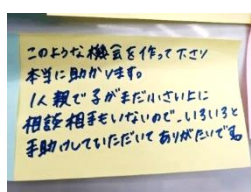 このような機会を作って下さり
本当に助かります。
1人親で子がまだ小さい上に
相談相手もいないので、いろいろと
手助けしていただいてありがたいです